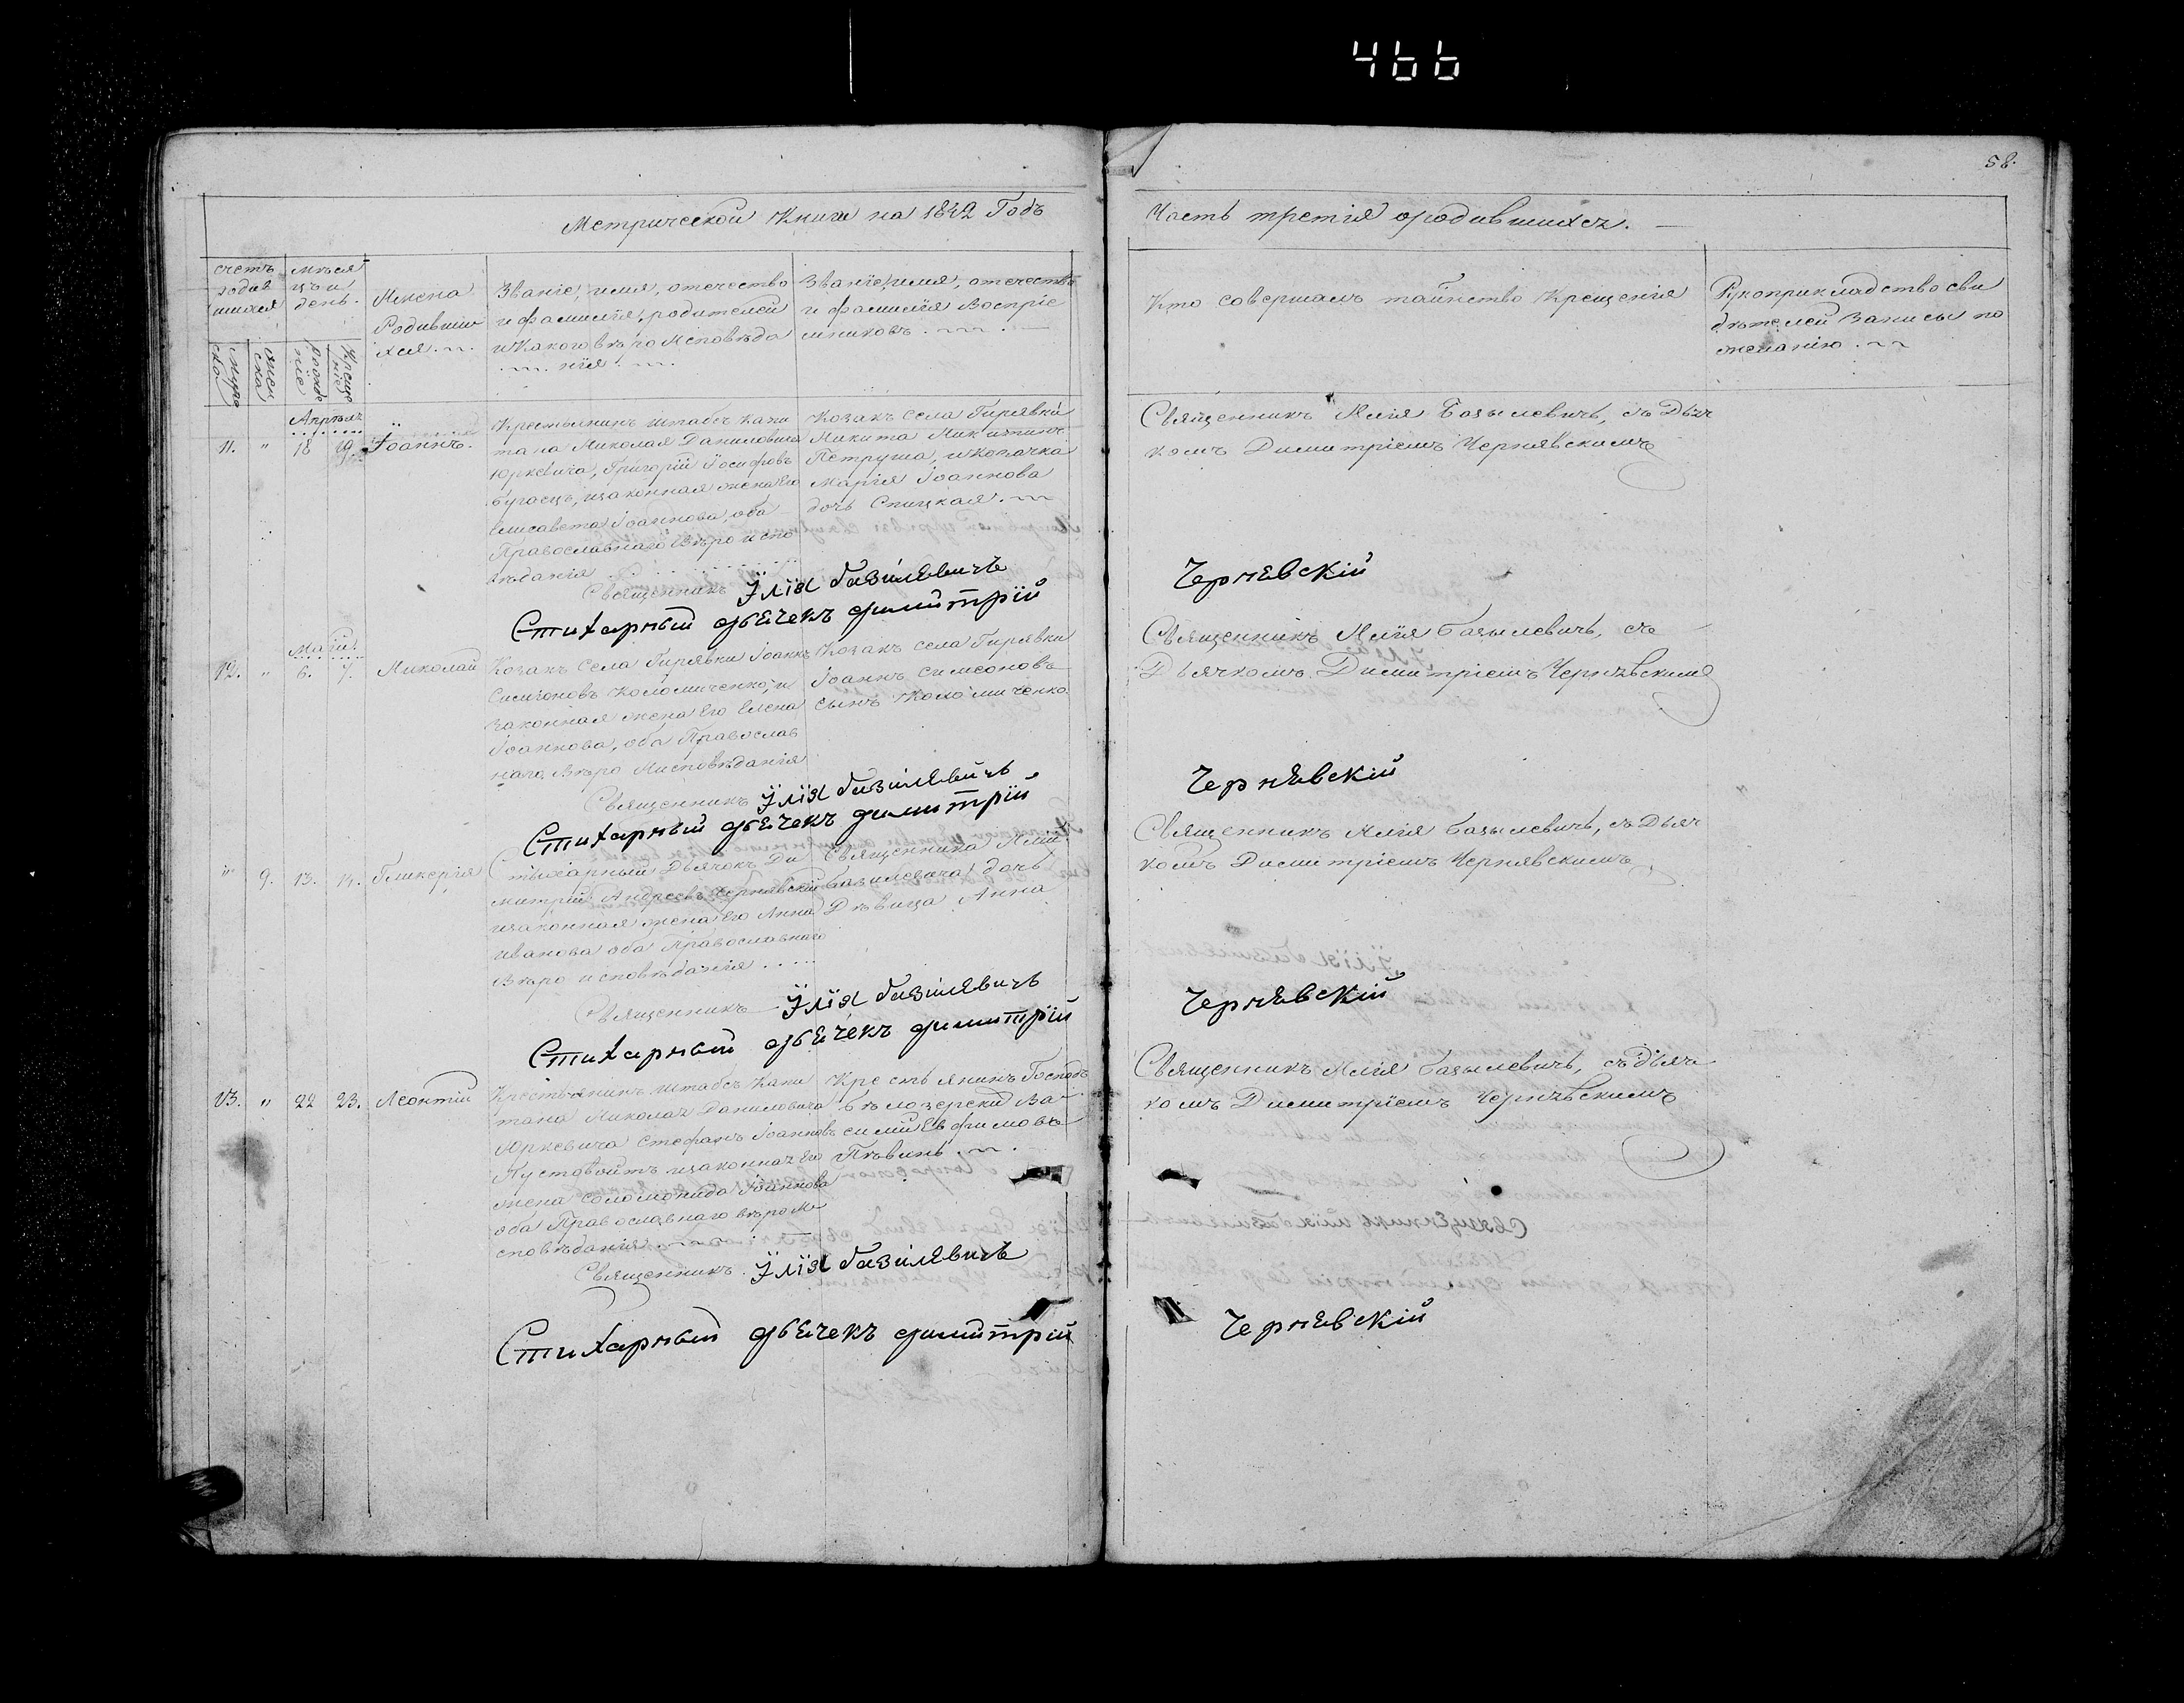 466
58.
Метрической Книги на 1842 Годъ
Часть третія ородившихся.
счетъ родив шихся
мѣся цъ и день.
Имена Родивши хся
Званіе, имя, отечество и фамилія, родителей и Какого вѣроисповѣда нія
Званіе, имя, отечество и фамилія Воспріе мниковъ
Кто совершалъ таинство Крещенія
Рукоприкладство сви дѣтелей Записи по желанію
муже ско.
жен ска
рожде ніе
Креще ніе
Апрѣль
11. " 18 19. Іоаннъ.
Крестьянинъ штабсъ Капи
тана Николая Даниловича
Юркевича, Григорій Іосифовъ
Бугаецъ, и законная жена Его
Елисавета Іоаннова, оба
Православнаго Вѣроиспо
вѣданія
Козакъ села Гирявки
Никита Никитинъ
Петруша, и козачка
Марія Іоаннова
дочь Спицкая.
Священникъ Илія Базылевичъ, съ Дяч
комъ Димитріемъ Чернявскимъ
Священникъ Ілія базілевичъ
Стихарный дьечекъ димитрій
Чернѣвскій
Маій.
12. " 6. 7. Николай
Козакъ села Гирявки Іоаннъ
Симеоновъ Коломиченко, и
Законная жена Его Елена
Іоаннова, оба Православ
наго Вѣро Исповѣданія
Козакъ села Гирявки
Іоаннъ Симеоновъ
сынъ Коломиченко
Священникъ Илія Базылевичъ, съ
Дьячкомъ Димитріемъ Чернѣвскимъ
Священникъ Ілія базілевичъ
Стихарный дьечекъ димитрій
Чернѣвскій
" 9. 13. 14. Гликерія
Стихарный Дьячокъ Ди
митрій Андреевъ Чернявскій
и законная жена Его Анна
Иванова оба Православнаго
Вѣроисповѣданія
Священника Иліи
Базилевича дочь
Дѣвица Анна
Священникъ Илія Базылевичъ, съ Дьяч
комъ Димитріемъ Чернявскимъ
Священникъ Ілія базілевичъ
Стихарный дьечекъ димитрій
Чернѣвскій
13. " 22 23. Леонтій
Крестьянинъ штабсъ Капи
тана Николая Даниловича
Юркевича Стефанъ Іоанновъ
Пустовойтъ и законная Его
жена Соломонида Іоаннова
оба Православнаго вѣроис
повѣданія
Крестьянинъ Господъ
Бѣлозерскихъ Ва
силій Ефимовъ
Пѣвинь.
Священникъ Илія Базылевичъ, съ дьяч
комъ Димитріемъ Чернѣвскимъ
Священникъ Ілія базілевичъ
Стихарный дьечекъ димитрій
Чернѣвскій